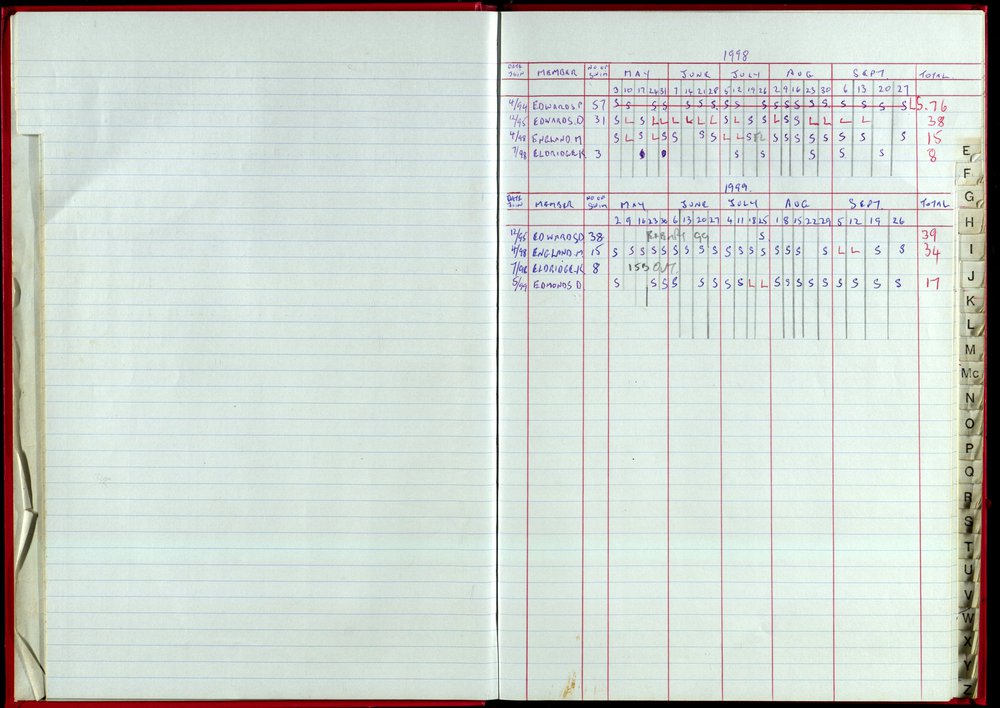 1998
DATE JOIN MEMBER NO OF SWIM MAY JUNE JULY AUG SEPT TOTAL
3 10 17 24 31 7 14 21 28 5 12 19 26 2 9 16 23 30 6 13 20 27
4/94 EDWARDS P 57 S S S S S S S S S S S S S S S S S S S L5.76
12/95 EDWARDS.D 31 S L S L L L L L L S L S S L S S L L L L 38
4/98 ENGLAND M S L S L S S S S L L S S S S S S S S S S 15
7/98 ELDRIDGE.K 3 S S S S S 8
1999.
DATE JOIN MEMBER NO OF SWIM MAY JUNE JULY AUG SEPT. TOTAL
2 9 16 23 30 6 13 20 27 4 11 18 25 1 8 15 22 29 5 12 19 26
12/95 EDWARDS D 38 99 S 39
4/98 ENGLAND.M 15 S S S S S S S S S S S S S S S S S L L S S 34
7/98 ELDRIDGE.K 8 OUT
5/99 EDMONDS D S S S S S S S S L L S S S S S S S S S 17
E
F
G
H
I
J
K
L
M
Mc
N
O
P
Q
R
S
T
U
V
W
X
Y
Z